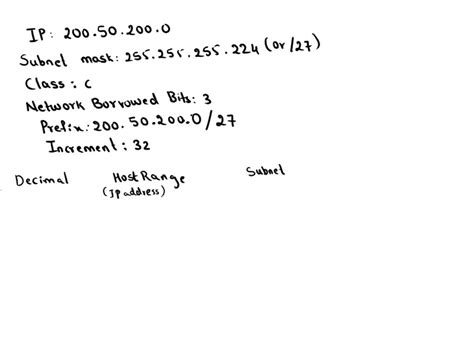 IP: 200.50.200.0
Subnet mask: 255.255.255.224 (or /27)
Class: C
Network Borrowed Bits: 3
Prefix: 200.50.200.0/27
Increment: 32
Decimal Host Range Subnet
(IP address)